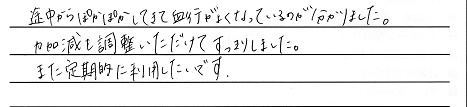 途中からぽかぽかしてきて血行がよくなっているのが分かりました。
力加減も調整いただけてすっきりしました。
また定期的に利用したいです.